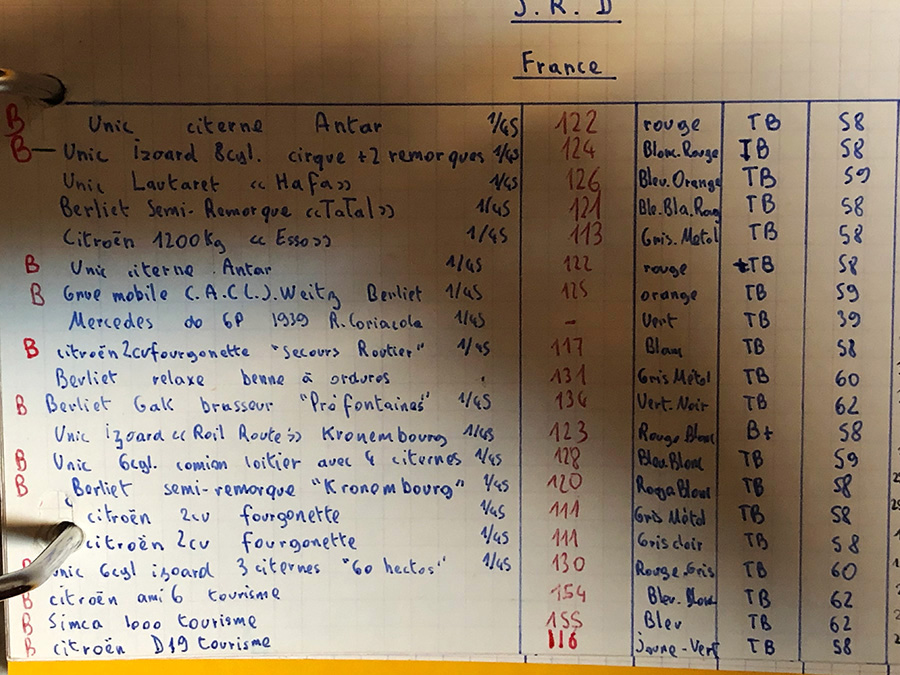 J. R. D
France
B Unic citerne Antar 1/45 122 rouge TB 58
B — Unic izoard 8cyl. cirque +2 remorques 1/45 124 Blanc.Rouge TB 58
Unic Lautaret «Hafa» 1/45 126 Bleu.Orange TB 59
Berliet Semi-Remorque «TaTal» 1/45 121 Ble.Bla.Roug TB 58
Citroën 1200Kg «Esso» 1/45 113 Gris.Métal TB 58
B Unic citerne Antar 1/45 122 rouge TB 58
B Grue mobile C.A.C(L).Weitz Berliet 1/45 125 orange TB 59
Mercedes do 6P 1939 R.Coriacola 1/45 - Vert TB 39
B citroën 2cv fourgonette "Secours Routier" 1/45 117 Blanc TB 58
Berliet relaxe benne à ordures 131 Gris Métal TB 60
B Berliet Gak brasseur "Préfontaines" 1/45 134 Vert.Noir TB 62
Unic izoard «Rail Route» Kronembourg 1/45 123 Rouge Blanc B+ 58
B Unic 6cyl. camion laitier avec 4 citernes 1/45 128 Bleu Blanc TB 59
B Berliet semi-remorque "Kronembourg" 1/45 120 Rouge Blanc TB 58
citroën 2cv fourgonette 1/45 111 Gris Métal TB 58
citroën 2cv fourgonette 1/45 111 Gris clair TB 58
B Unic 6cyl izoard 3 citernes "60 hectos" 1/45 130 Rouge.Gris TB 60
B citroën ami 6 tourisme 154 Bleu.Blanc TB 62
B Simca 1000 tourisme 155 Bleu TB 62
B citroën D19 tourisme 116 Jaune-Vert TB 58